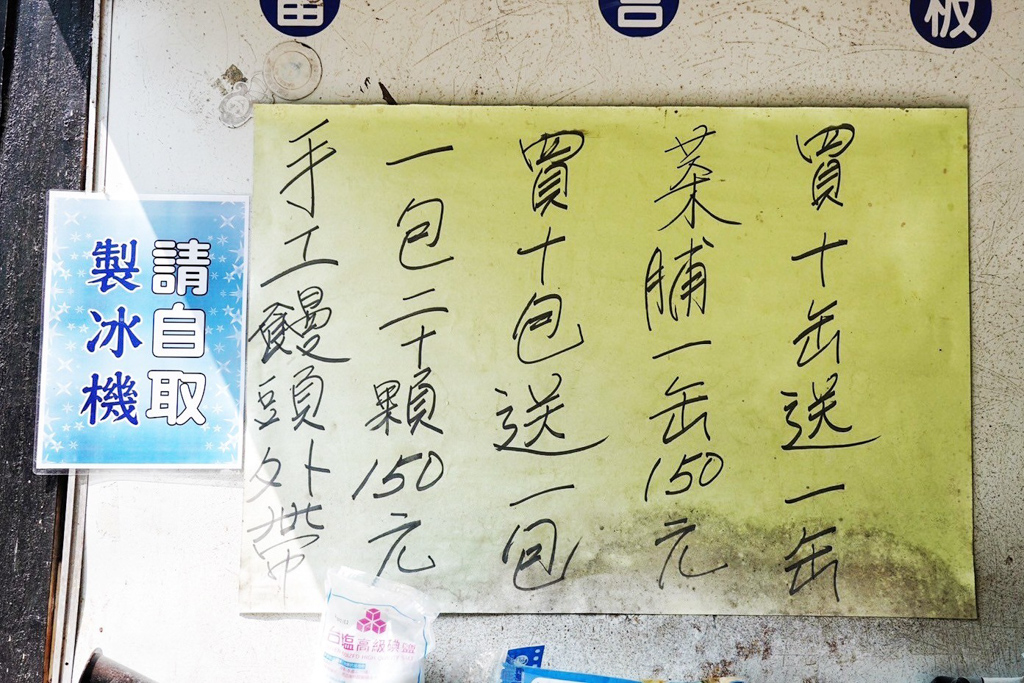 留言板
請自取
製冰機
手工饅頭外帶
一包二十顆150元
買十包送一包
菜脯一缶150元
買十缶送一缶
台塩高級碘鹽